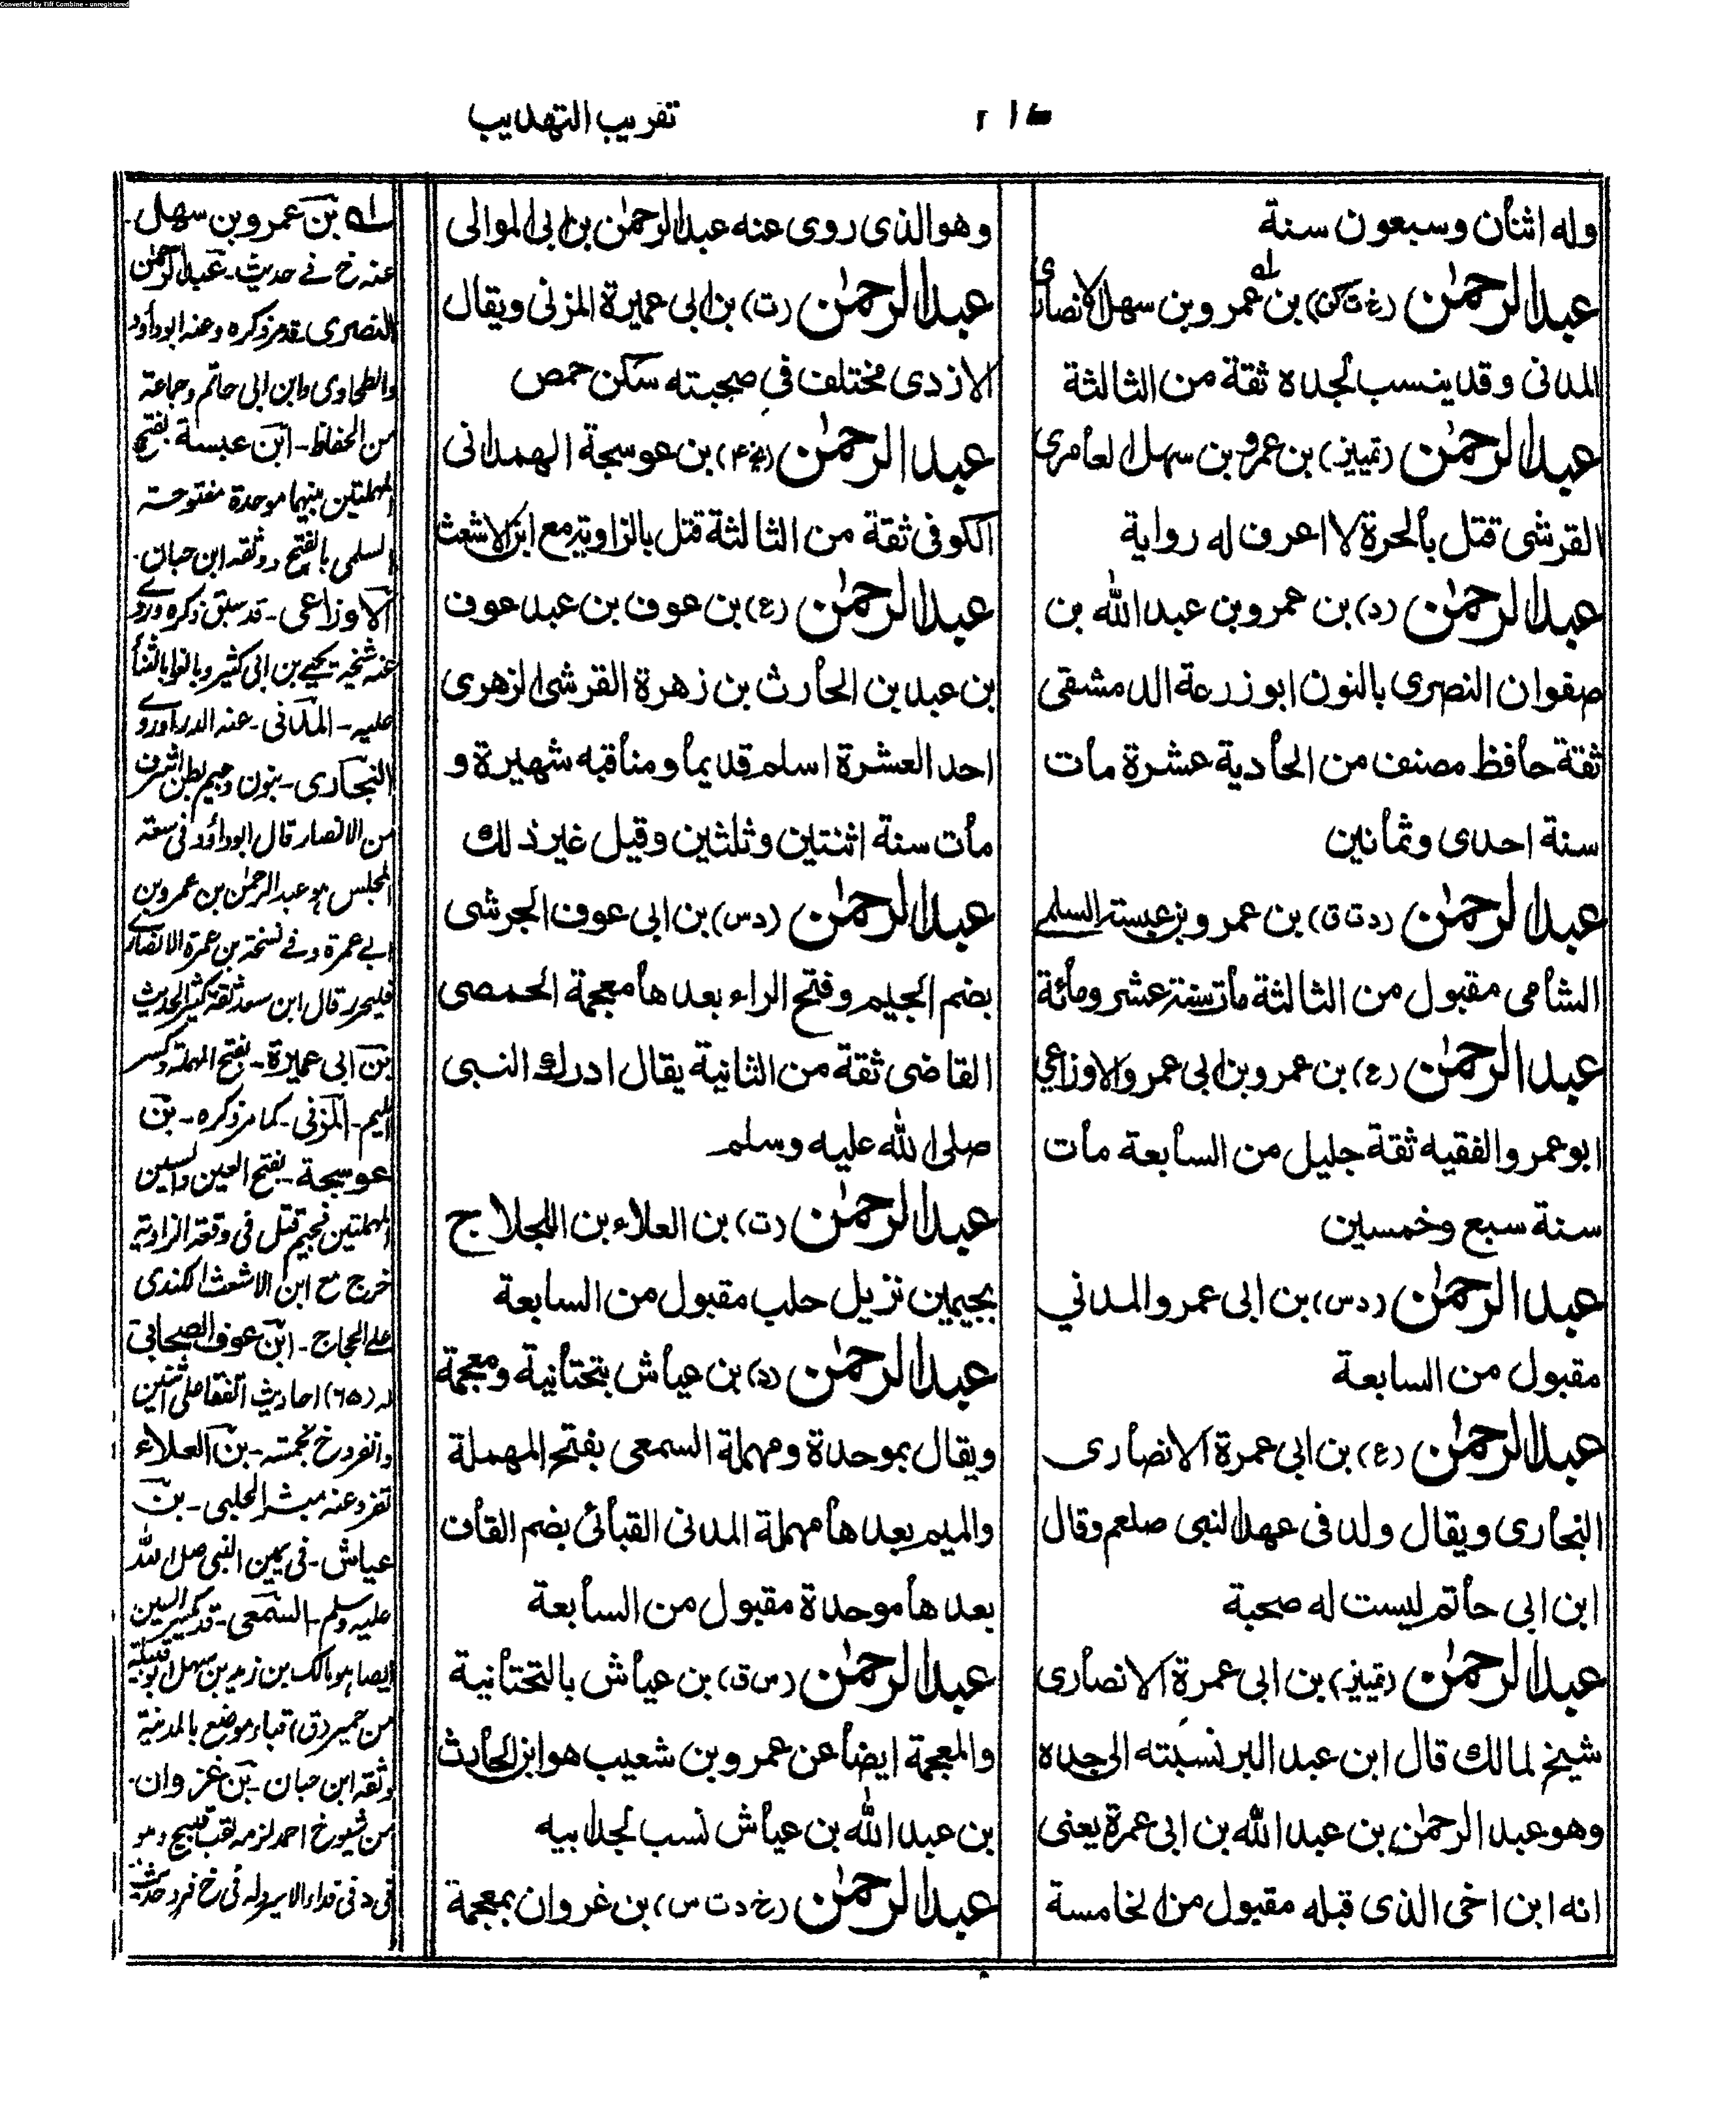 Converted by Tiff Combine - unregistered
تقريب التهذيب
وله اثنان وسبعون سنة
عبد الرحمٰن (خ ت كن) بن عمرو بن سهل الانصارى
المدنى وقد ينسب لجده ثقة من الثالثة
عبد الرحمٰن (تمييز) بن عمرو بن سهل العامرى
القرشى قتل بالحرة لا اعرف له رواية
عبد الرحمٰن (د) بن عمرو بن عبد الله بن
صفوان النصرى بالنون ابو زرعة الدمشقى
ثقة حافظ مصنف من الحادية عشرة مات
سنة احدى وثمانين
عبد الرحمٰن (د ت ق) بن عمرو بن عبسة السلمى
الشامى مقبول من الثالثة مات سنة عشر ومائة
عبد الرحمٰن (ع) بن عمرو بن ابى عمرو الاوزاعي
ابو عمرو الفقيه ثقة جليل من السابعة مات
سنة سبع وخمسين
عبد الرحمٰن (د س) بن ابى عمرو المدني
مقبول من السابعة
عبد الرحمٰن (ع) بن ابى عمرة الانصارى
النجارى ويقال ولد فى عهد النبى صلعم وقال
ابن ابى حاتم ليست له صحبة
عبد الرحمٰن (تمييز) بن ابى عمرة الانصارى
شيخ لمالك قال ابن عبد البر نسبته الى جده
وهو عبد الرحمٰن بن عبد الله بن ابى عمرة يعنى
انه ابن اخى الذى قبله مقبول من الخامسة
وهو الذى روى عنه عبد الرحمٰن بن ابى الموالى
عبد الرحمٰن (ت) بن ابى عميرة المزنى ويقال
الازدى مختلف فى صحبته سكن حمص
عبد الرحمٰن (بخ ۴) بن عوسجة الهمدانى
الكوفى ثقة من الثالثة قتل بالزاوية مع ابن الاشعث
عبد الرحمٰن (ع) بن عوف بن عبد عوف
بن عبد بن الحارث بن زهرة القرشى الزهرى
احد العشرة اسلم قديما ومناقبه شهيرة و
مات سنة اثنتين وثلثين وقيل غير ذلك
عبد الرحمٰن (د س) بن ابى عوف الجرشى
بضم الجيم وفتح الراء بعدها معجمة الحمصى
القاضى ثقة من الثانية يقال ادرك النبى
صلى الله عليه وسلم
عبد الرحمٰن (ت) بن العلاء بن اللجلاج
بجيمين نزيل حلب مقبول من السابعة
عبد الرحمٰن (د) بن عياش بتحتانية ومعجمة
ويقال بموحدة ومهملة السمعى بفتح المهملة
والميم بعدها مهملة المدنى القبائى بضم القاف
بعدها موحدة مقبول من السابعة
عبد الرحمٰن (س ق) بن عياش بالتحتانية
والمعجمة ايضا عن عمرو بن شعيب هو ابن الحارث
بن عبد الله بن عياش نسب لجد ابيه
عبد الرحمٰن (خ د ت س) بن غزوان بمعجمة
له بن عمرو بن سهل -
عنه خ فے حديث - عبد الرحمٰن
النصرى - قد مر ذكره وعنه ابو داؤد
والطحاوى وابن ابى حاتم وجماعة
من الحفاظ - ابن عبسة بفتح
المهملتين بينهما موحدة مفتوحة
السلمى بالفتح وثقه ابن حبان -
الاوزاعى - قد سبق ذكره
عنه شيخه يحيے بن ابى كثير وبالغوا بالثنا
عليه - المدنى - عنه الدراوردى
النجارى - بنون وجيم بطن
من الانصار قال ابو داؤد فى
المجلس هو عبد الرحمٰن بن عمرو بن
ابے عمرة وفے نسخة بن عمرة الانصارى
فليحرر قال ابن سعد ثقة كثير الحديث
بن ابى عميرة - بفتح المهملة وكسر
الميم - المزنى - كما مر ذكره - بن
عوسجة - بفتح العين والسين
المهملتين فجيم قتل فى وقعة الزاوية
خرج مع ابن الاشعث الكندى
علے الحجاج - ابن عوف الصحابى
له (۶۵) احاديث اتفقا على اثنين
وانفرد خ بخمسة - بن العلاء
تفرد عنه مبشر الحلبى - بن
عياش - فى يمين النبى صلى الله
عليه وسلم - السمعى - قد كسر السين
ايضا هو مالك بن زيد بن سهل ابو قبيلة
من حمير (ق) قباء موضع بالمدينة
وثقه ابن حبان - بن غزوان -
من شيوخ احمد لزمه لقب قبيح وهو